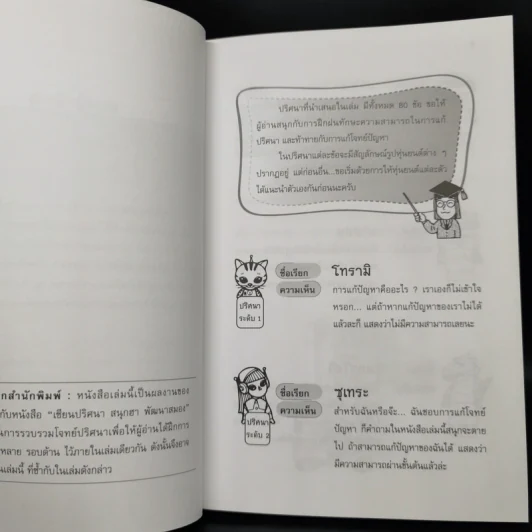 กสำนักพิมพ์ : หนังสือเล่มนี้เป็นผลงานของ
กับหนังสือ "เซียนปริศนา สนุกฮา พัฒนาสมอง"
นการรวบรวมโจทย์ปริศนาเพื่อให้ผู้อ่านได้ฝึกการ
หลาย รอบด้าน ไว้ภายในเล่มเดียวกัน ดังนั้นจึงอาจ
นเล่มนี้ ที่ซ้ำกับในเล่มดังกล่าว
ปริศนาที่นำเสนอในเล่ม มีทั้งหมด 80 ข้อ ขอให้
ผู้อ่านสนุกกับการฝึกฝนทักษะความสามารถในการแก้
ปริศนา และท้าทายกับการแก้โจทย์ปัญหา
ในปริศนาแต่ละข้อจะมีสัญลักษณ์รูปหุ่นยนต์ต่าง ๆ
ปรากฏอยู่ แต่ก่อนอื่น...ขอเริ่มด้วยการให้หุ่นยนต์แต่ละตัว
ได้แนะนำตัวเองกันก่อนนะครับ
ปริศนา
ระดับ 1
ชื่อเรียก โทรามิ
ความเห็น การแก้ปัญหาคืออะไร ? เราเองก็ไม่เข้าใจ
หรอก... แต่ถ้าหากแก้ปัญหาของเราไม่ได้
แล้วละก็ แสดงว่าไม่มีความสามารถเลยนะ
ปริศนา
ระดับ 2
ชื่อเรียก ซุเทระ
ความเห็น สำหรับฉันหรือจ้ะ... ฉันชอบการแก้โจทย์
ปัญหา ก็คำถามในหนังสือเล่มนี้สนุกจะตาย
ไป ถ้าสามารถแก้ปัญหาของฉันได้ แสดงว่า
มีความสามารถผ่านขั้นต้นแล้วล่ะ